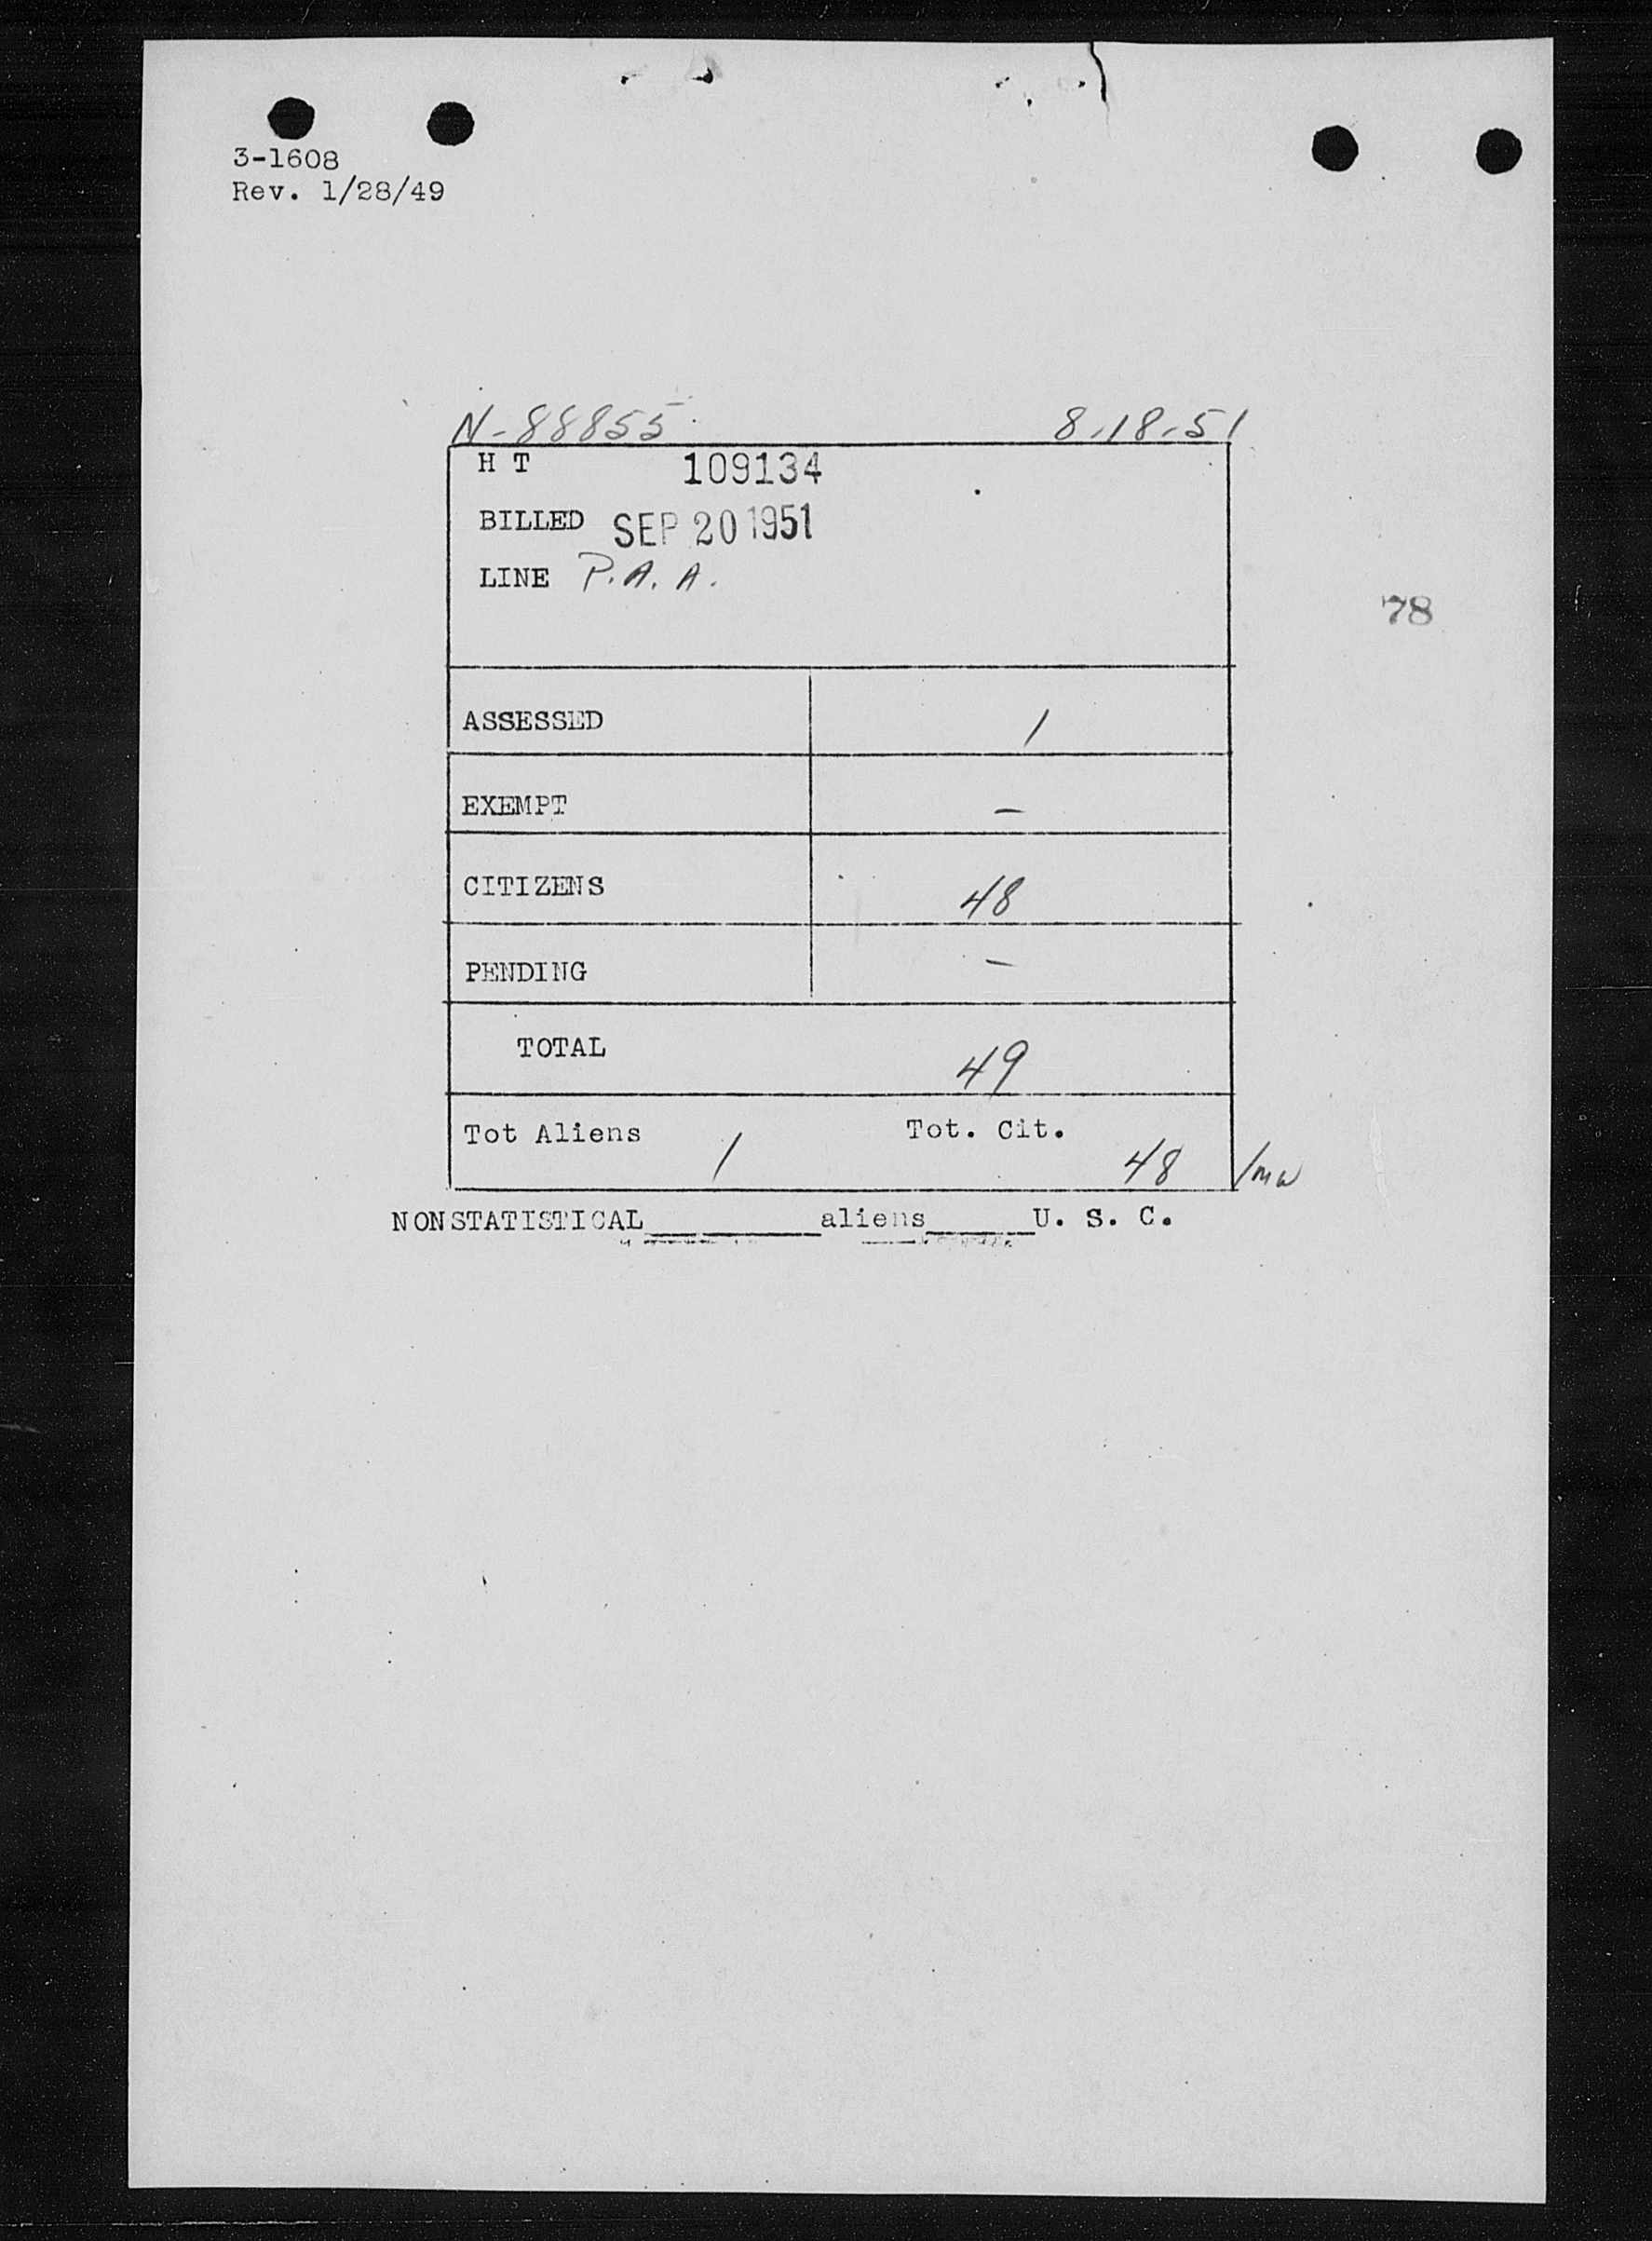 3-1608
Rev. 1/28/49
N-88855 8.18.51
H T 109134
BILLED SEP 20 1951
LINE P.A.A.
78
ASSESSED 1
EXEMPT –
CITIZENS 48
PENDING –
TOTAL 49
Tot Aliens 1 Tot. Cit. 48 /mw
NONSTATISTICAL________aliens_____U. S. C.